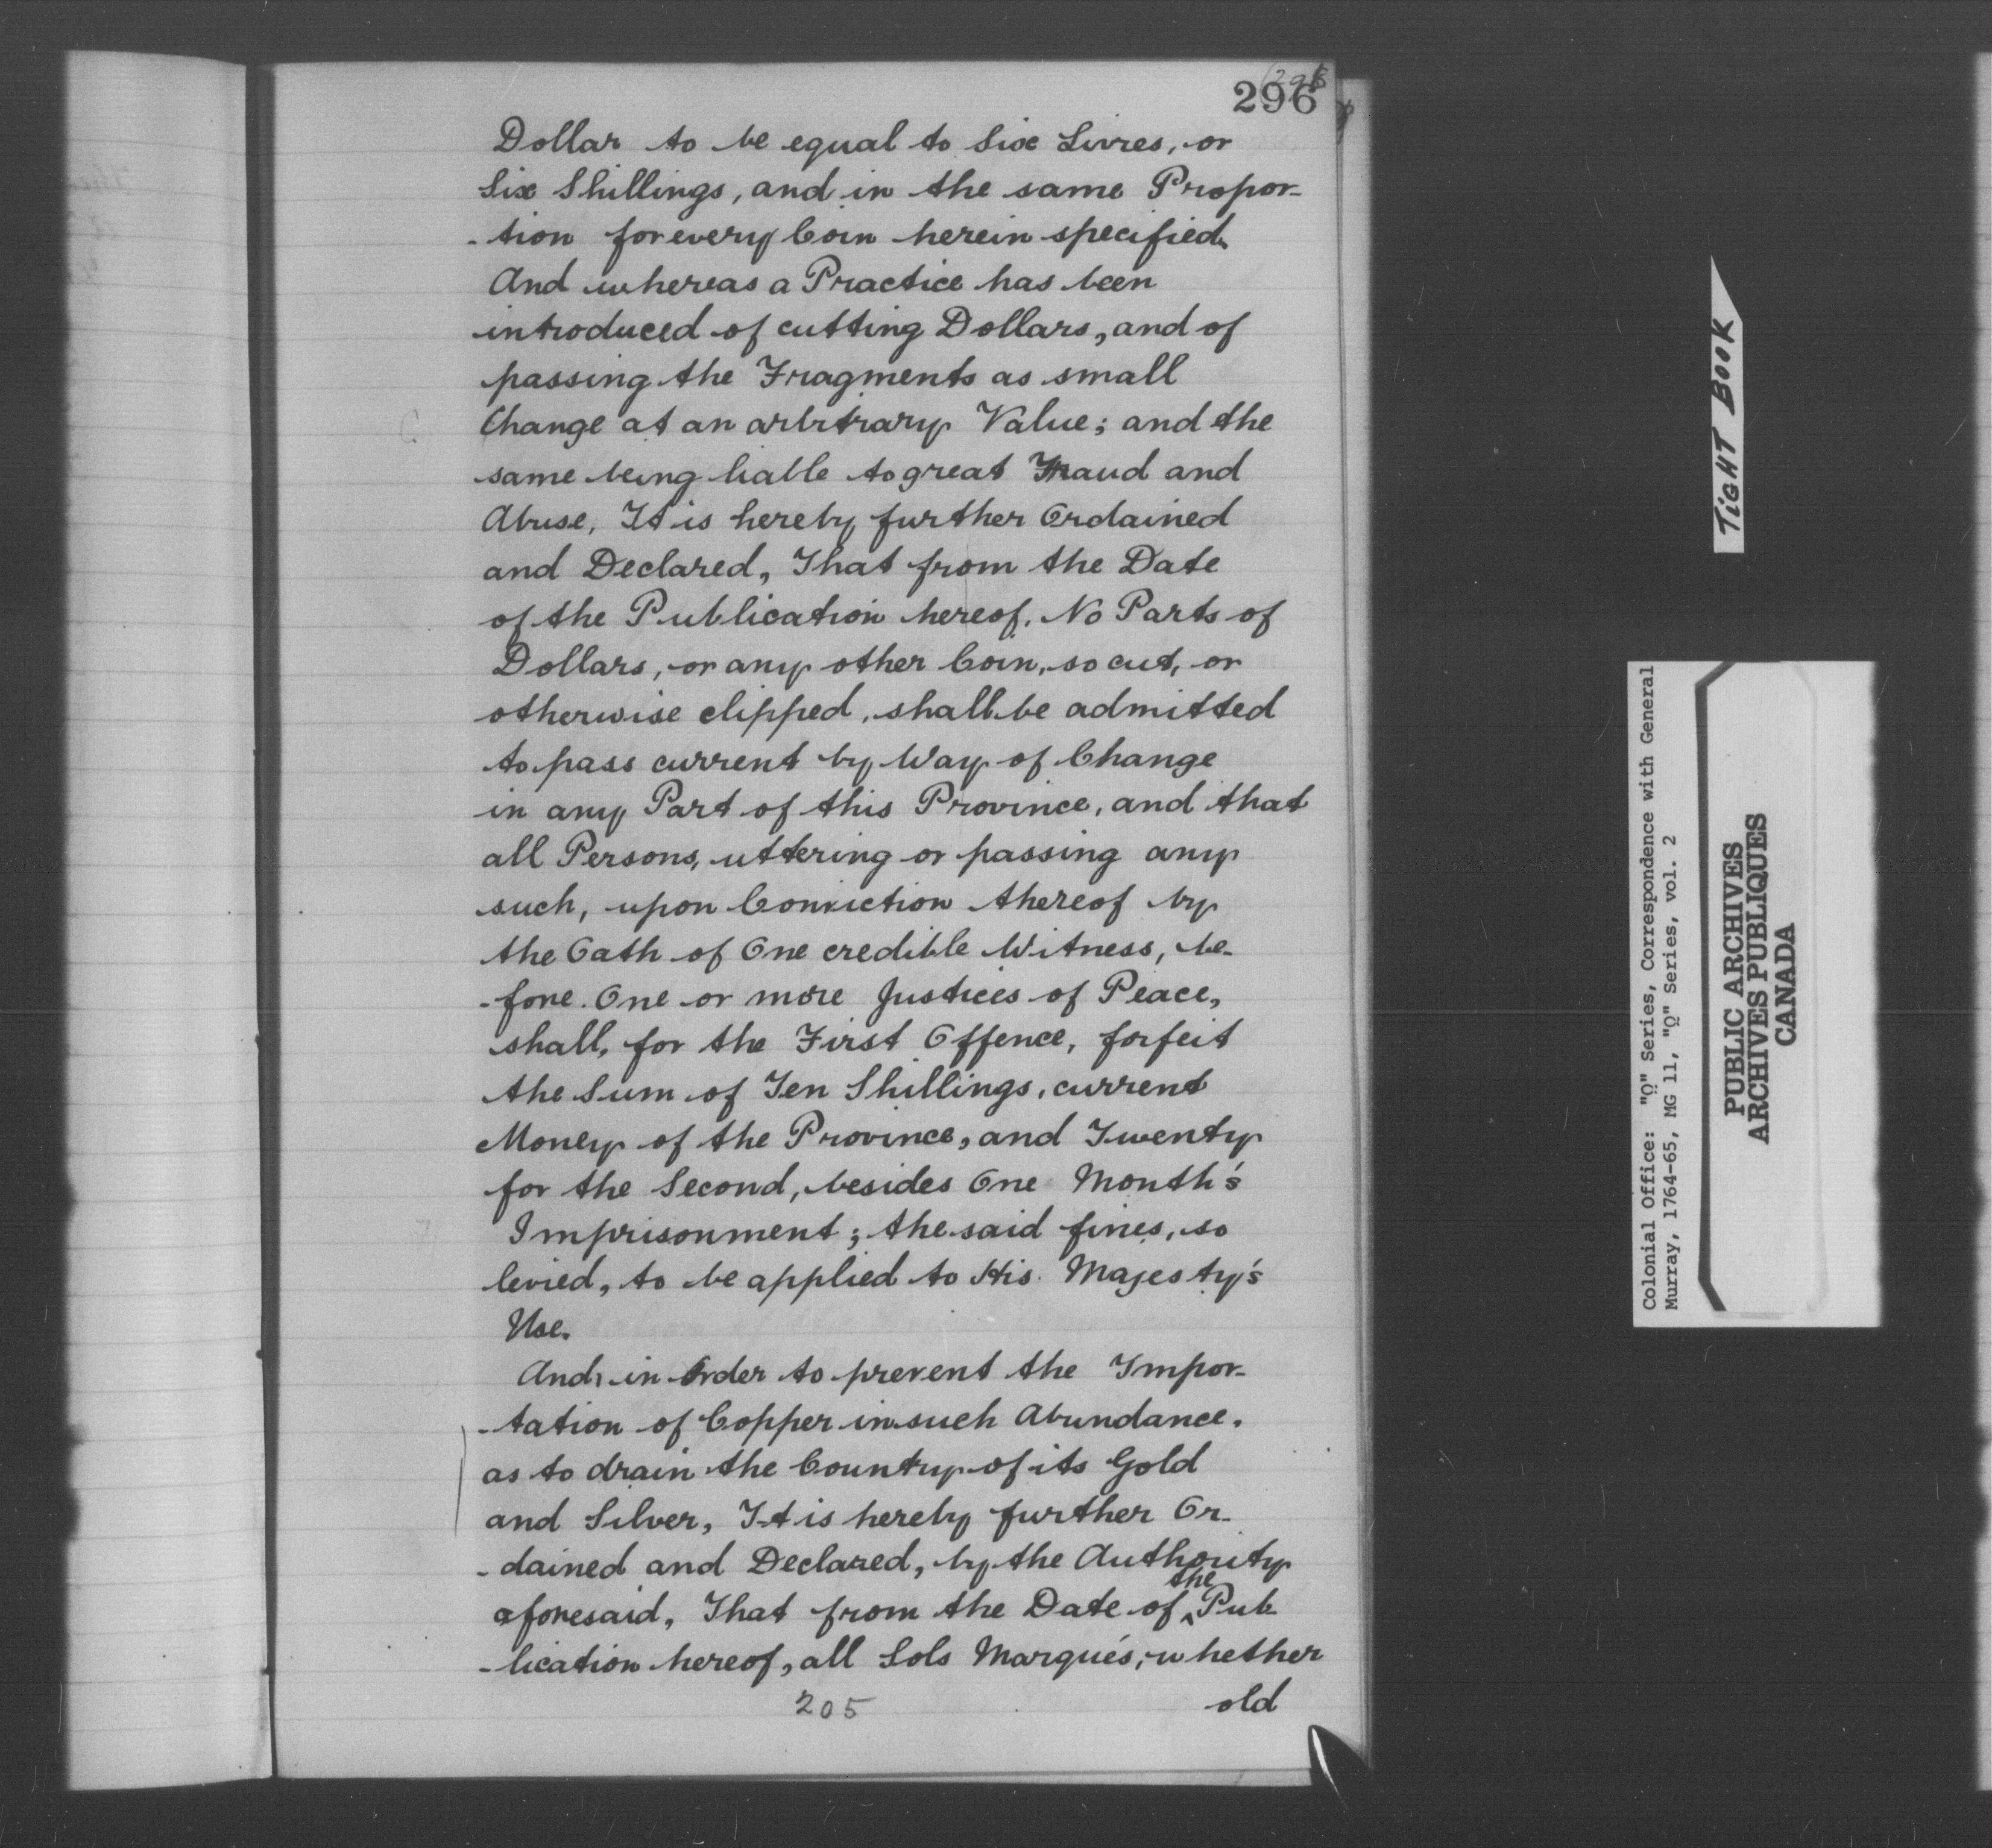 296
Dollar to be equal to Six Livres, or
Six Shillings, and in the same Propor-
-tion for every Coin herein specified.
And whereas a Practice has been
introduced of cutting Dollars, and of
passing the Fragments as small
Change at an arbitrary Value; and the
same being liable to great Fraud and
Abuse, It is hereby further Ordained
and Declared, That from the Date
of the Publication hereof, No Parts of
Dollars, or any other Coin, so cut, or
otherwise clipped, shall be admitted
to pass current by Way of Change
in any Part of this Province, and that
all Persons, uttering or passing any
such, upon Conviction thereof by
the Oath of One credible Witness, be-
-fore One or more Justices of Peace,
shall, for the First Offence, forfeit
the Sum of Ten Shillings, current
Money of the Province, and Twenty
for the Second, besides One Month's
Imprisonment; the said fines, so
levied, to be applied to His Majesty's
Use.
And, in Order to prevent the Impor-
-tation of Copper in such Abundance,
as to drain the Country of its Gold
and Silver, It is hereby further Or-
-dained and Declared, by the Authority
aforesaid, That from the Date of the Pub
-lication hereof, all Sols Marqués, whether
old
205
TIGHT BOOK
Colonial Office: "Q" Series, Correspondence with General
Murray, 1764-65, MG 11, "Q" Series, vol. 2
PUBLIC ARCHIVES
ARCHIVES PUBLIQUES
CANADA